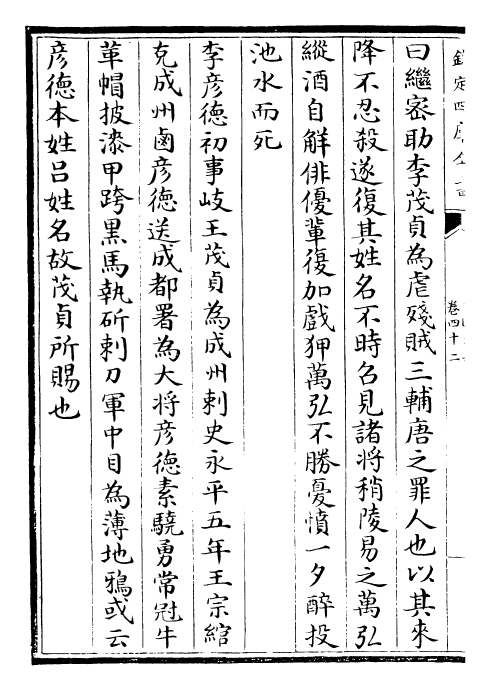 欽定四庫全書
卷四十二
曰繼密助李茂貞為虐殘賊三輔唐之罪人也以其來
降不忍殺遂復其姓名不時召見諸將稍陵易之萬弘
縱酒自解俳優輩復加戲狎萬弘不勝憂憤一夕醉投
池水而死
李彥德初事岐王茂貞為成州刺史永平五年王宗綰
克成州鹵彥德送成都署為大將彥德素驍勇常冠牛
革帽披漆甲跨黑馬執斫刺刀軍中目為薄地鴉或云
彥德本姓呂姓名故茂貞所賜也